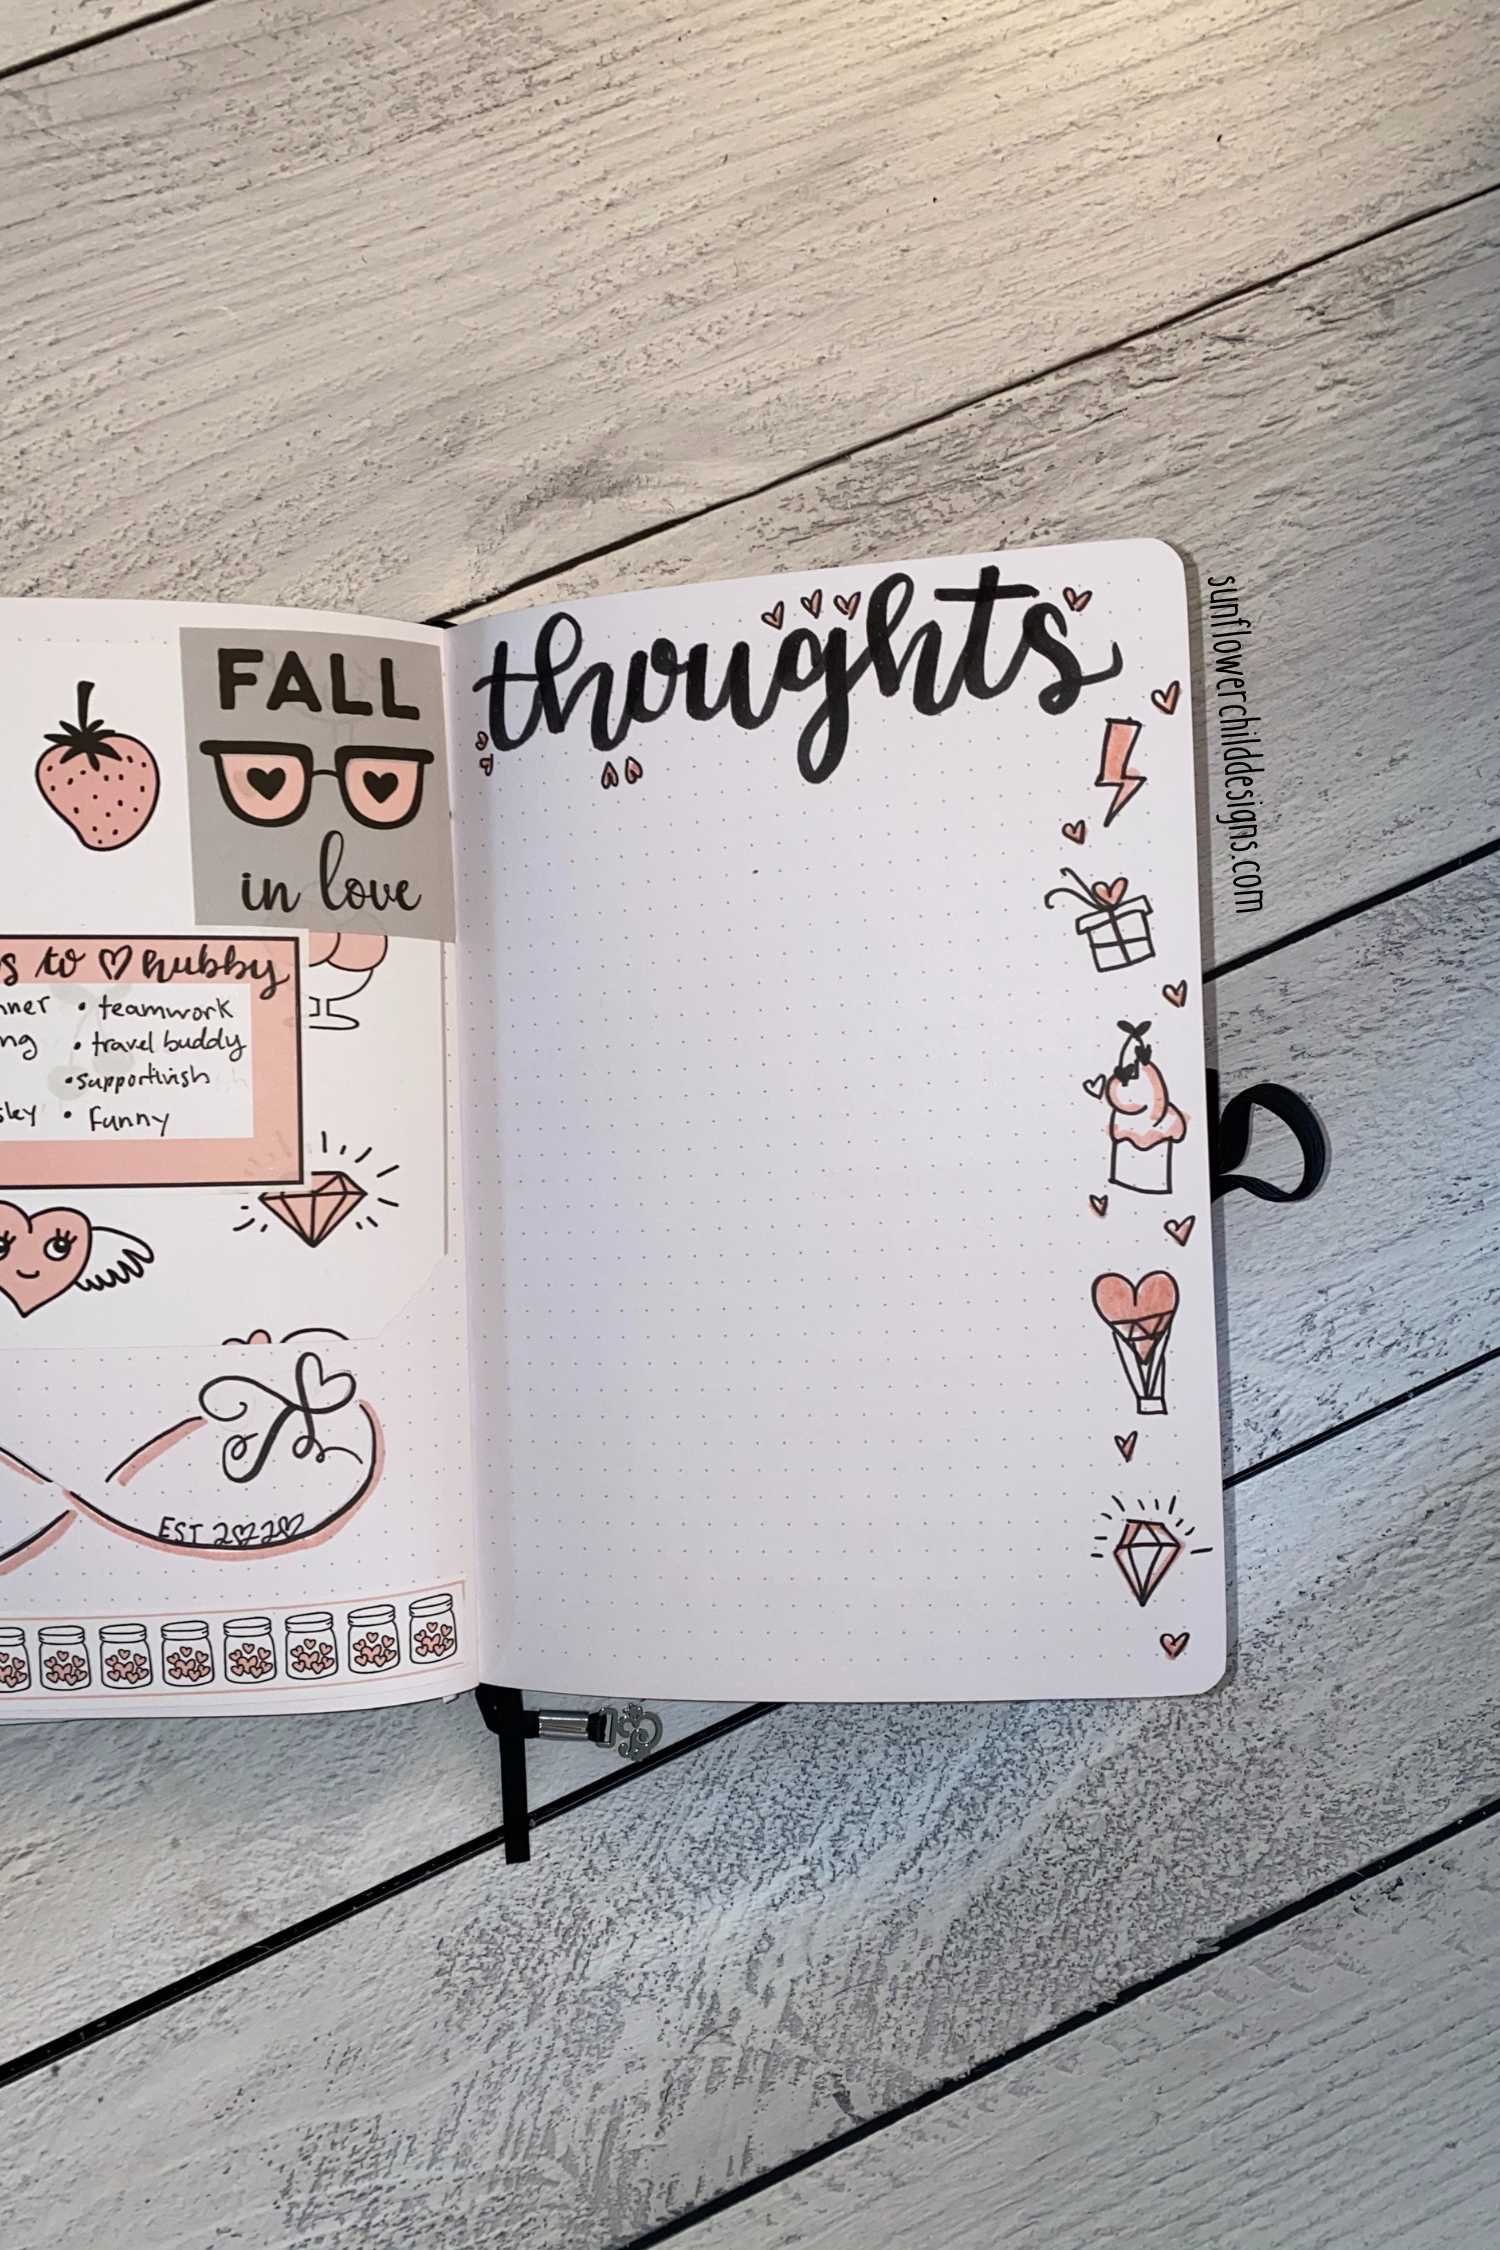 FALL
in love
to ♡ hubby
• teamwork
• travel buddy
• supportivish
• Funny
EST 2♡2♡
thoughts
sunflowerchilddesigns.com